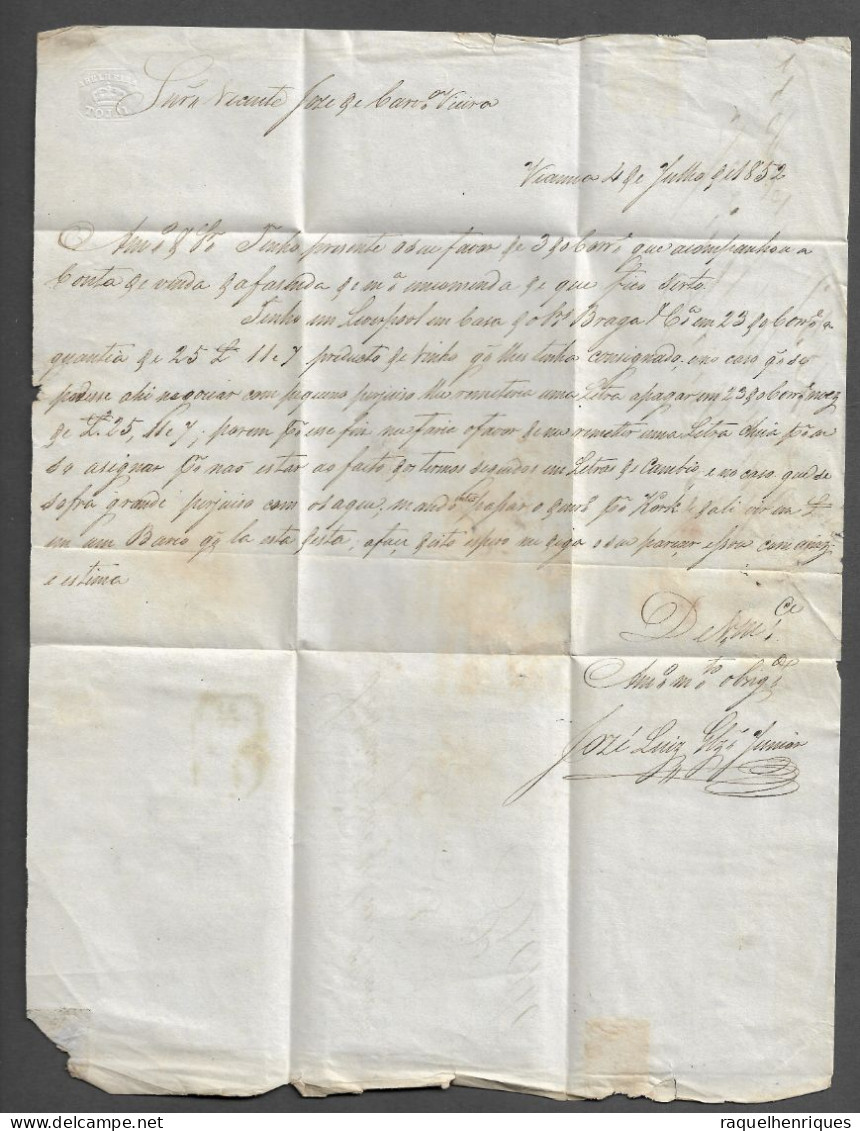 Snr. Vicente Joze de Carvo. Vieira
Vianna 4 de Julho de 1852
Amo. & Sr. Tenho presente o seu favor de 3 do Corre. que acompanhou a
Conta de venda da fasenda de ma. encomenda de que fico serto.
Tenho em Liverpool em Casa do Rs. Braga & Ca. em 23 do Corre. a
quantia de 25 L 11 e 7 producto de vinho q. lhes tinha consignado, e no caso q. se
podesse ahi negociar com pequeno perjuiso lhe remeteria uma Letra apagar em 23 do Corre. mez
de L 25, 11 e 7, porem po. esse fim me faria o favor de me remeter uma Letra cheia po. eu
so asignar po. não estar ao facto dos termos seguidos em Letras de Cambio, e no caso que se
sofra grande perjuiso com o saque, mando pasar o para Kork e dali vir em L
em um Barco q. la esta desta, a face disto espero me diga o seu pareçer e sou com amize.
e estima
De Vmce.
Amo. mto. obrigdo.
José Luiz Junior
TOJAL
raquelhenriques